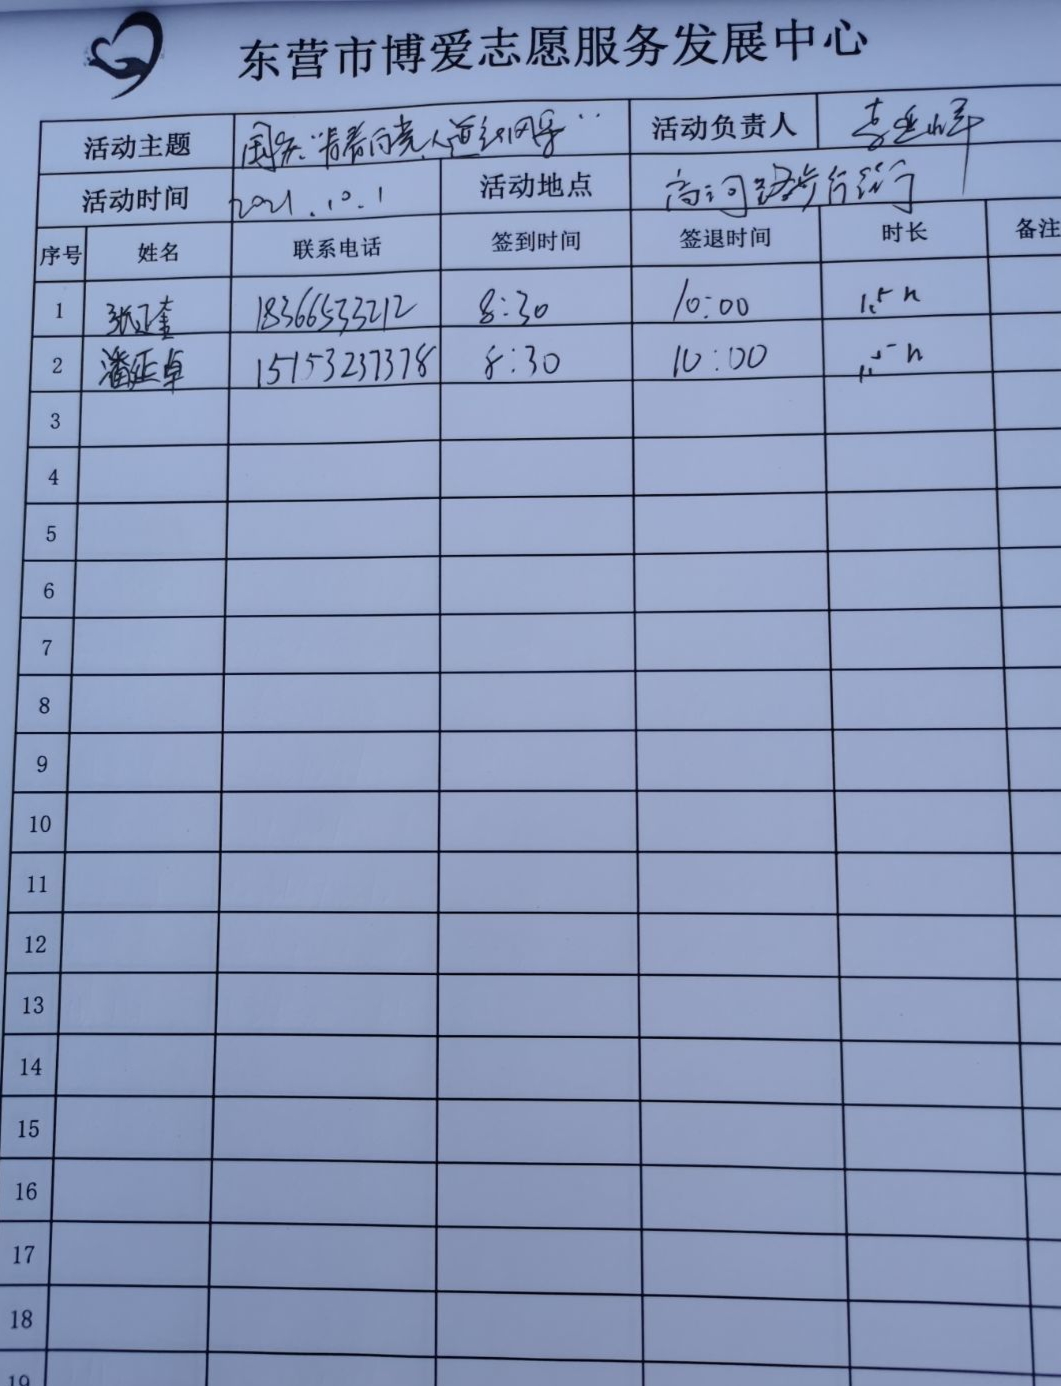 东营市博爱志愿服务发展中心
活动主题 国庆"青春向党 活动负责人
活动时间 2021.10.1 活动地点 高河路步行街
序号 姓名 联系电话 签到时间 签退时间 时长 备注
1 18366533212 8:30 10:00 1.5h
2 潘延卓 15153237378 8:30 10:00 1.5h
3
4
5
6
7
8
9
10
11
12
13
14
15
16
17
18
19